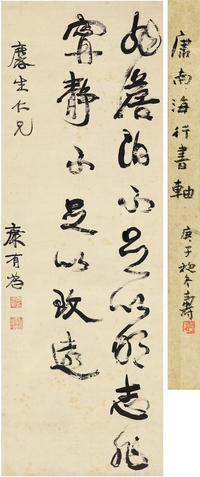 非澹泊不足以明志非
寧靜不足以致遠
麐生仁兄
康有為
康南海行書軸
庚子初冬壽